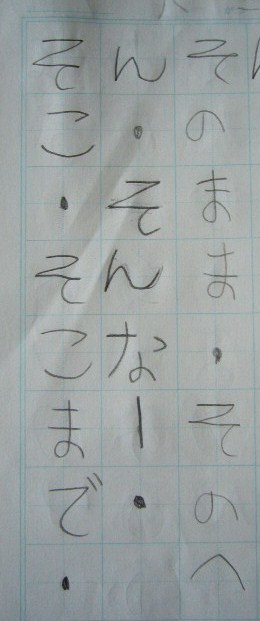 そのまま・そのへ
ん・そんなー・
そこ・そこまで・